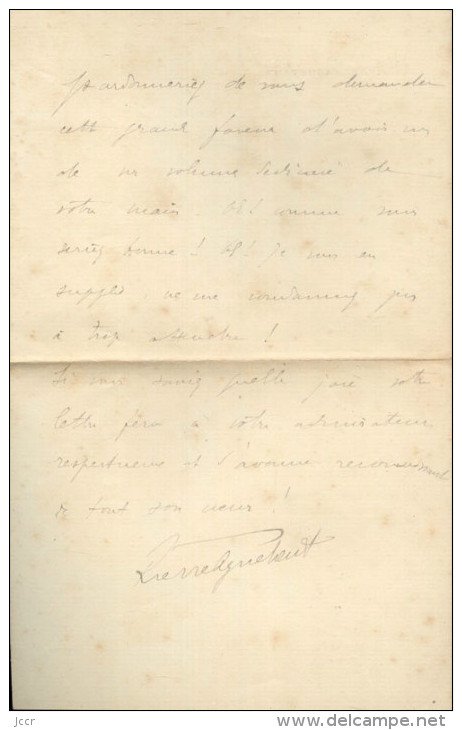 Pardonneriez de vous demander
cette grande faveur d'avoir un
de vos volumes dédicacé de
votre main. Oh! comme vous
seriez bonne! Oh! Je vous en
supplie, ne me condamnez pas
à trop attendre!
Si vous saviez quelle joie votre
lettre fera à votre admirateur
respectueux et d'avance reconnaissant
de tout son cœur!
Pierre
jccr
www.delcampe.net